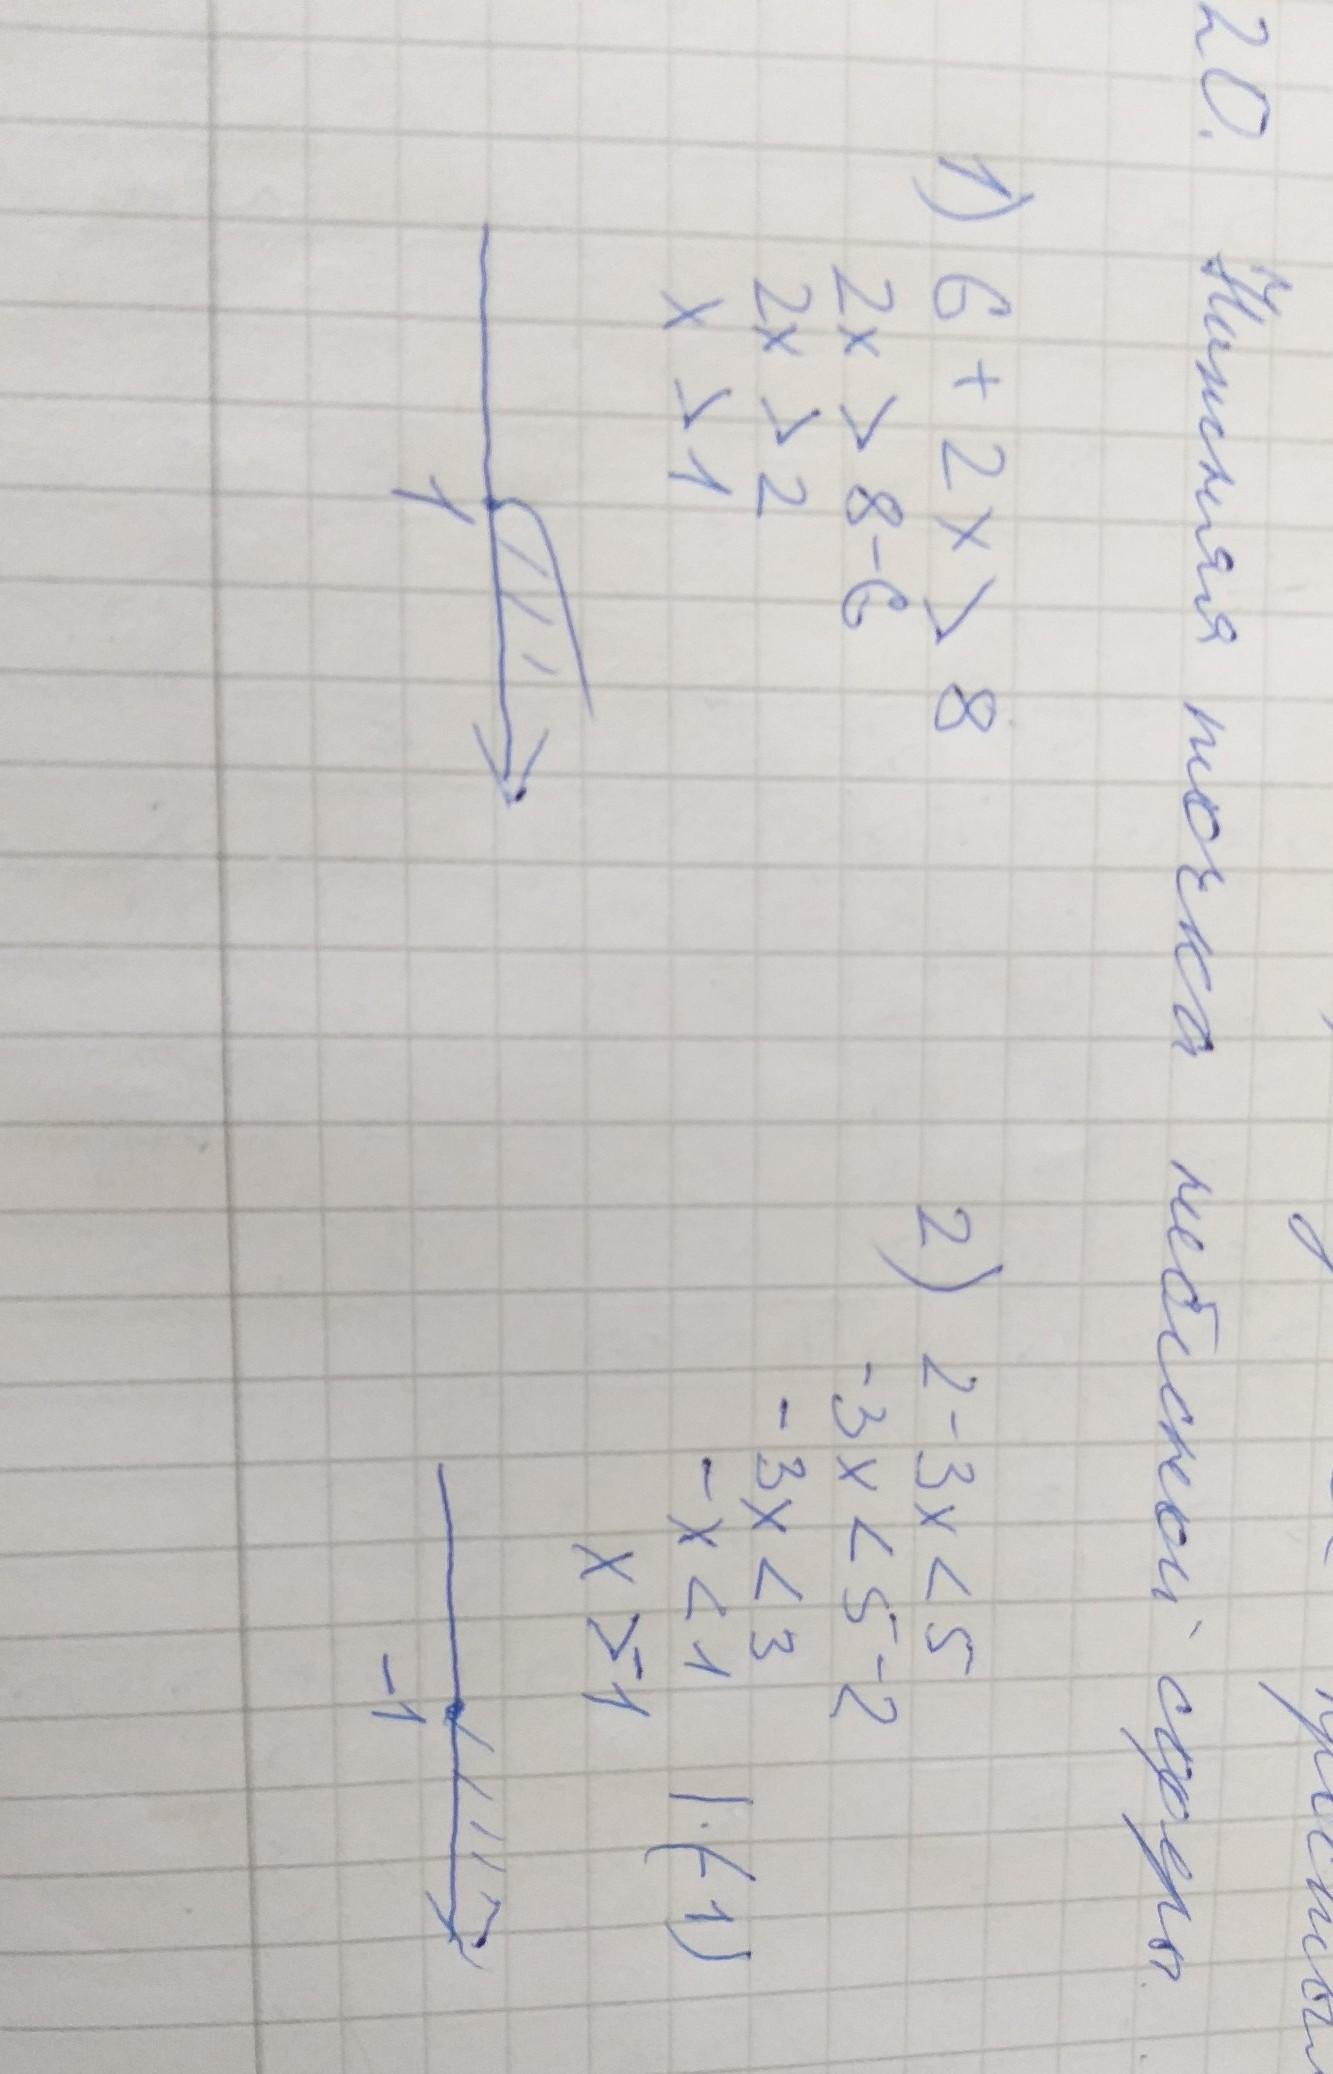 20. Нижняя точка небесной сферы.
1) 6 + 2x > 8
2x > 8-6
2x > 2
x > 1
1
2) 2-3x<5
-3x<5-2
-3x<3
-x<1 |·(-1)
x>-1
-1